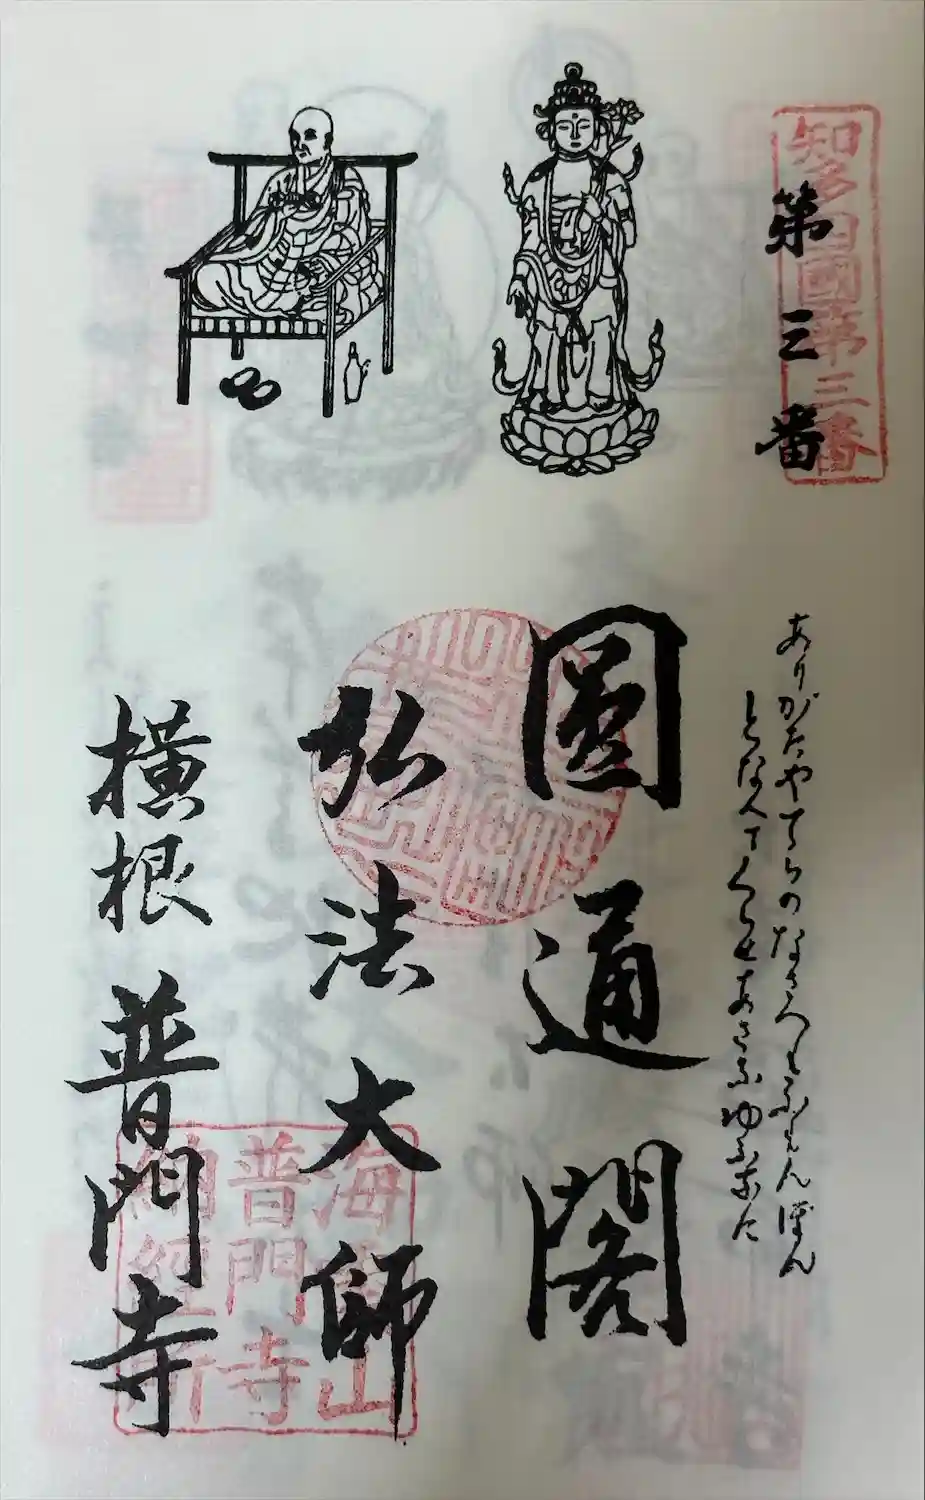 知多四國第三番
第三番
ありがたやてらのなさへもふもんぼん
となへてくらせあさなゆふなに
圓通閣
弘法大師
横根 普門寺
海
山
普門寺
納經所